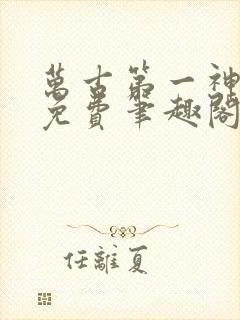 萬古第一神
免費筆趣閣
任離夏